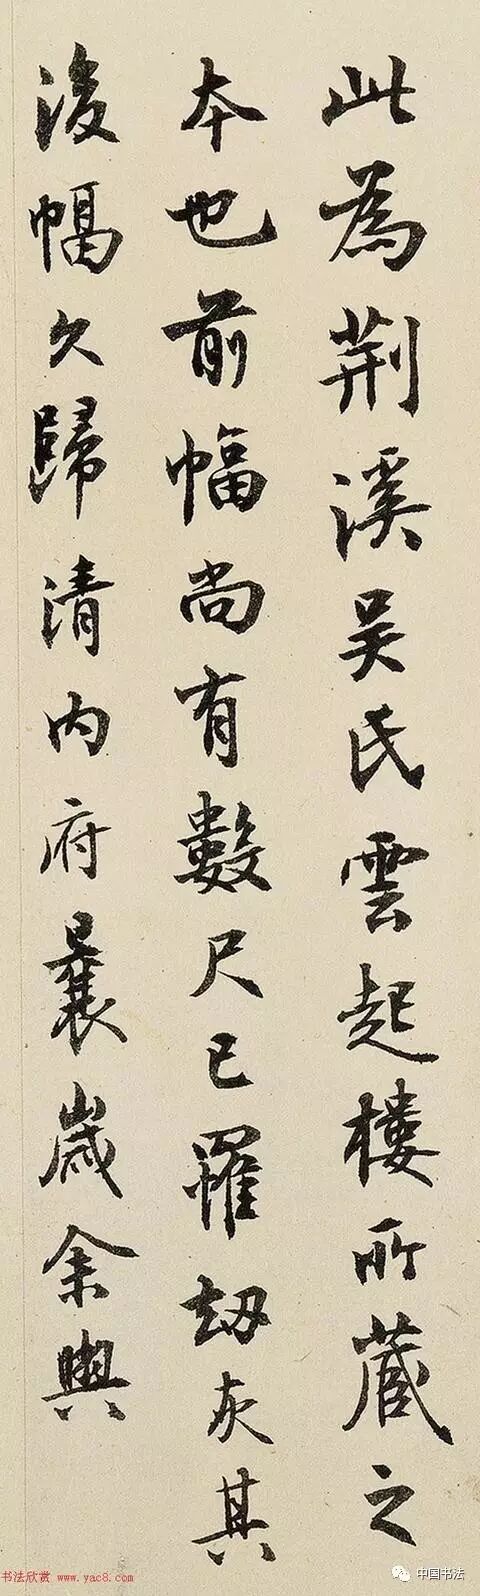 此為荆溪吴氏雲起樓所蔵之
本也前幅尚有數尺已罹劫灰其
後幅久歸清内府曩歲余與
书法欣赏 www.yac8.com
中国书法